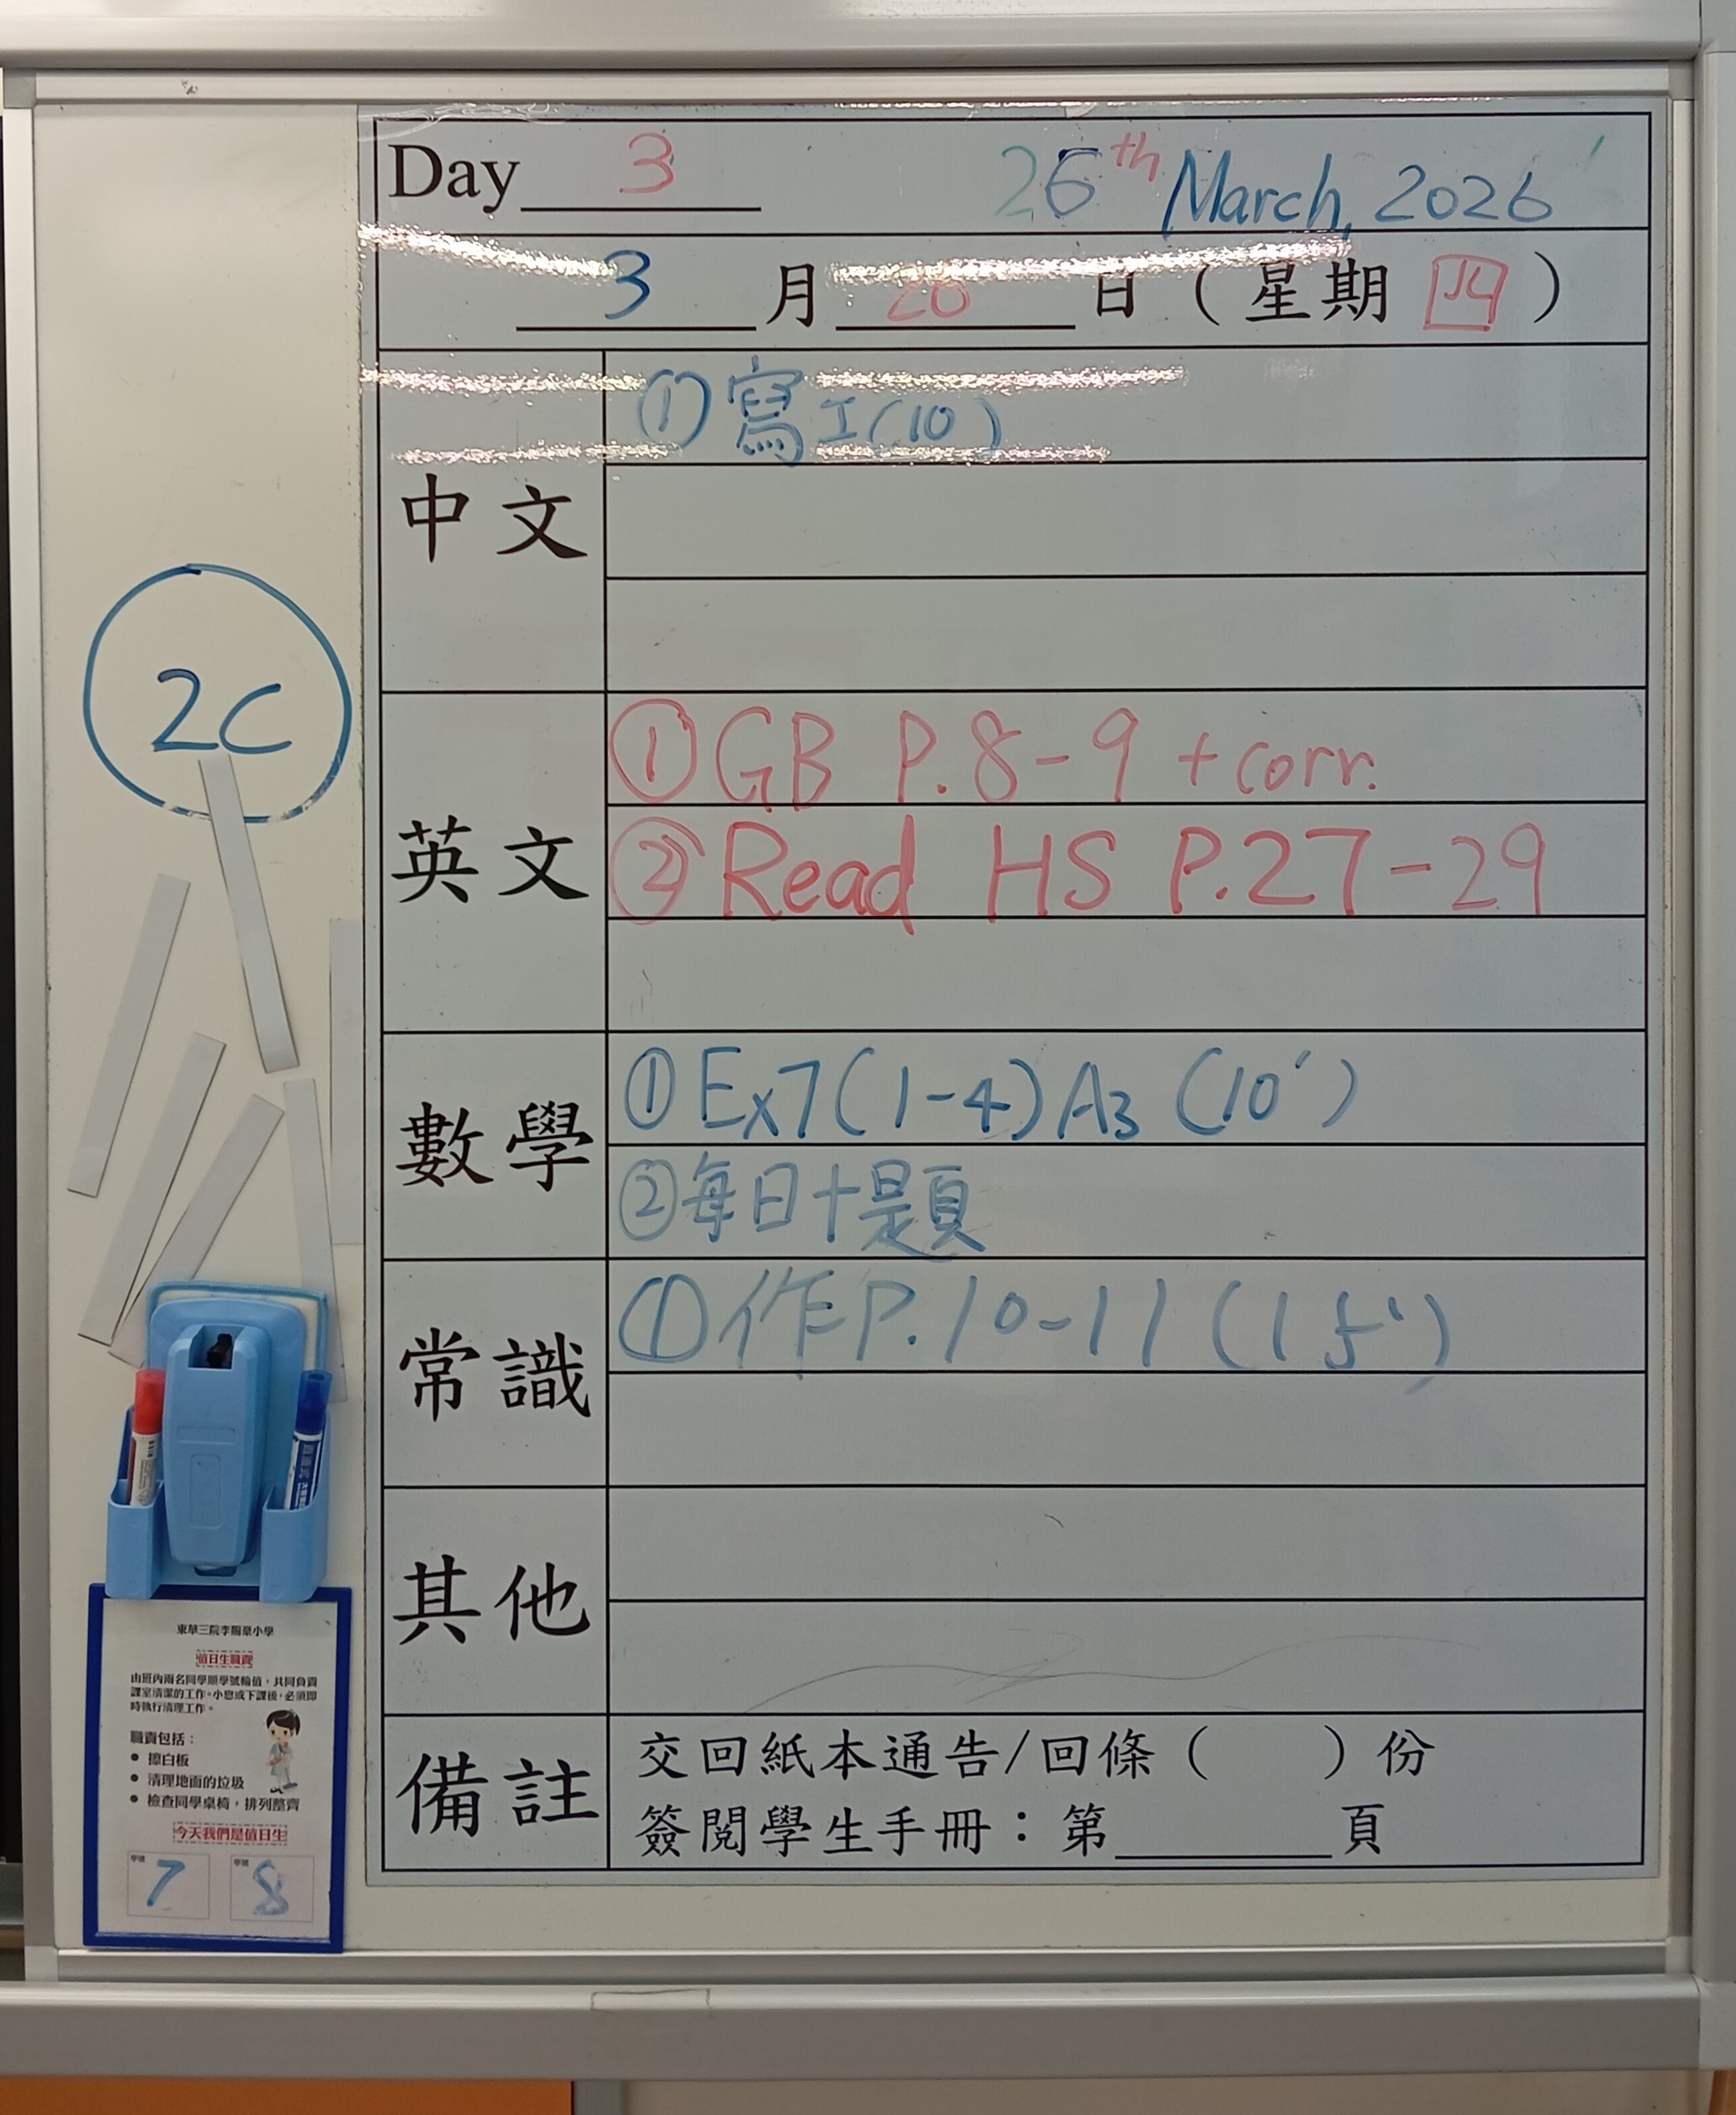 Day 3 26th March, 2026
3 月 26 日 ( 星期 四 )
中文
① 寫工(10)
英文
① GB P.8-9 + corr.
② Read HS P.27-29
數學
① Ex7(1-4) A3 (10')
② 每日十題
常識
① 作P.10-11 (15')
其他
備註
交回紙本通告/回條 ( ) 份
簽閱學生手冊：第______頁
2C
東華三院李賜豪小學
值日生職責
由班內兩名同學順學號輪值，共同負責
課室清潔的工作。小息或下課後，必須即
時執行清理工作。
職責包括：
● 擦白板
● 清理地面的垃圾
● 檢查同學桌椅，排列整齊
今天我們是值日生
學號 7 學號 8